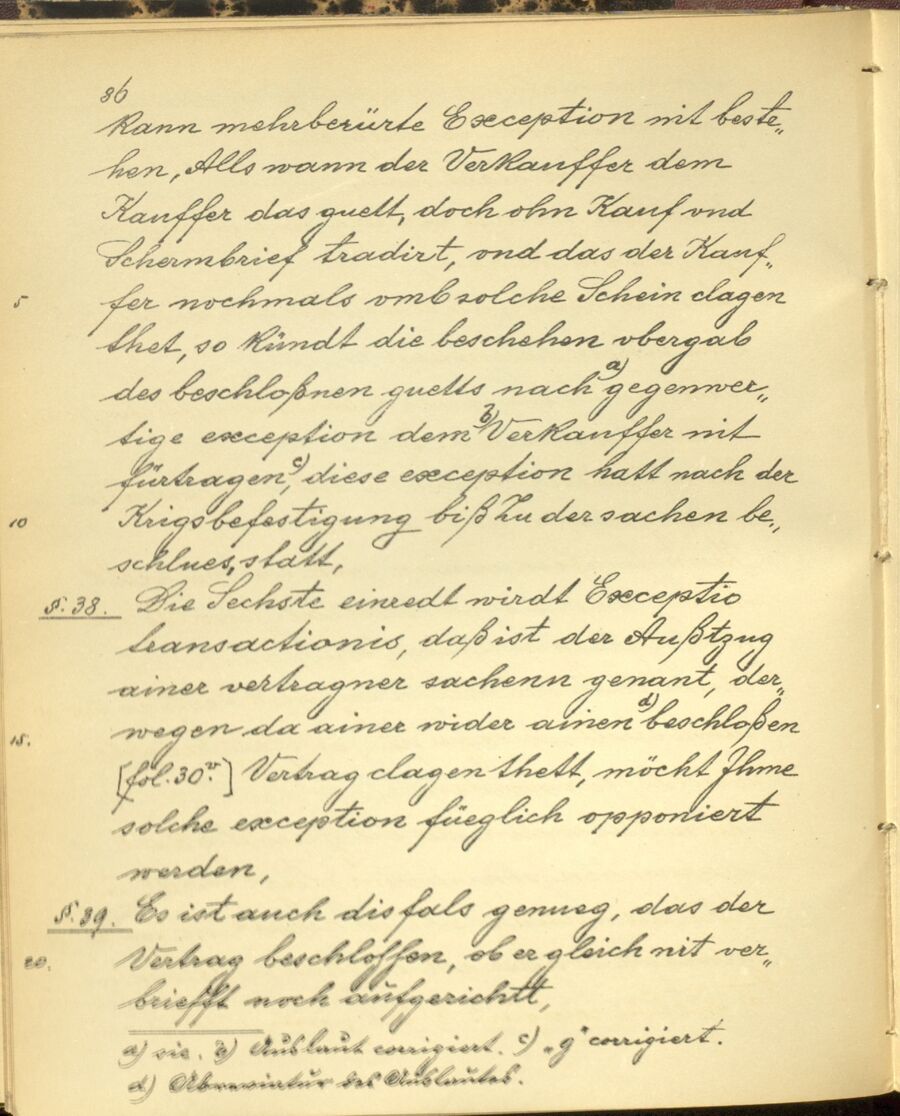 86
kann mehrberürte Exception nit beste„
hen, Alls wann der Verkauffer dem
Kauffer das guett, doch ohn Kauf vnd
Schermbrief tradirt, vnd das der Kauf„
5 fer nochmals vmb solche Schein clagen
thet, so kündt die beschehen vbergab
des beschloßnen guetts nach a) gegenwer„
tige exception dem b) Verkauffer nit
fürtragen c), diese exception hatt nach der
10 Krigsbefestigung biß Zu der sachen be„
schlues, statt,
§. 38. Die Sechste einredt wirdt Exceptio
transactionis, daß ist der Außtzug
ainer vertragner sachenn genant, der„
15. wegen da ainer wider ainen d) beschloßen
[fol. 30v.] Vertrag clagen thett, möcht Ihme
solche exception füeglich opponiert
werden,
§. 39. Es ist auch disfals genueg, das der
20. Vertrag beschlossen, ob er gleich nit ver„
briefft noch aufgerichtt,
a) sic. b) Auslaut corrigiert. c) „g" corrigiert.
d) Abbreviatur des Auslautes.